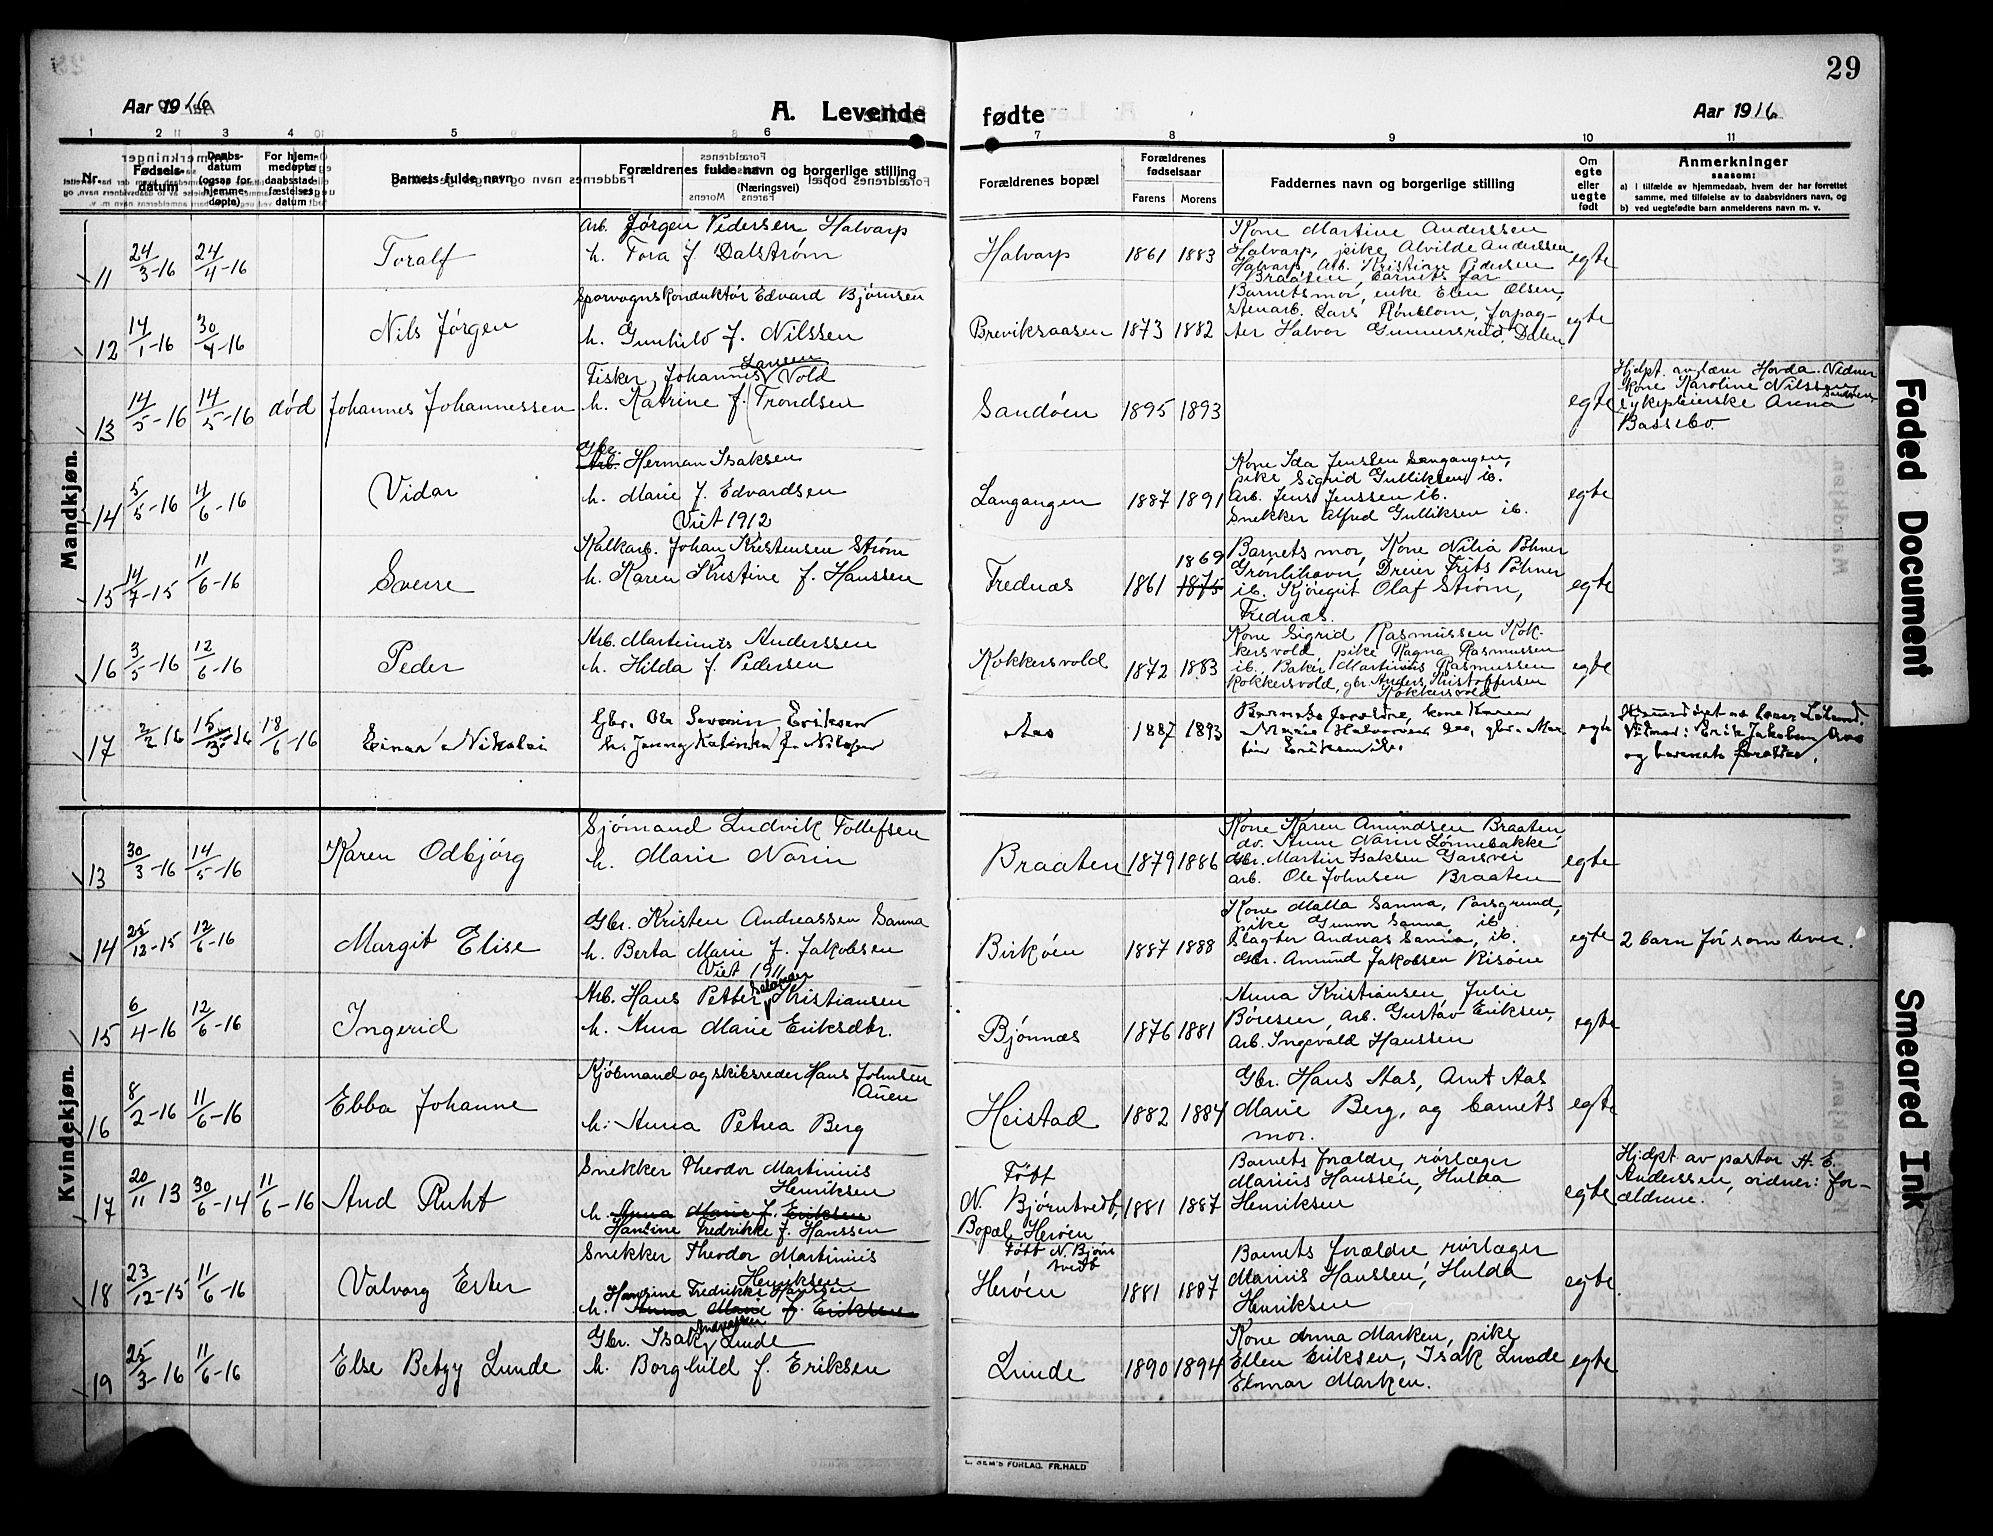 29
Aar 1916
A. Levende fødte
Aar 1916
1 2 3 4 5 6 7 8 9 10 11
Nr.
Fødsels-
datum
Daabs-
datum
(ogsaa for
hjemme-
døpte)
For hjem-
medøpte
daabsstad-
fæstelses
datum
Barnets fulde navn
Forældrenes fulde navn og borgerlige stilling
(Næringsvei)
Forældrenes bopæl
Forældrenes
fødselsaar
Farens Morens
Faddernes navn og borgerlige stilling
Om
egte
eller
uegte
født
Anmerkninger
saasom:
a) i tilfælde av hjemmedaab, hvem der har forrettet
samme, med tilføielse av to daabsvidners navn, og
b) ved uegtefødte barn anmelderens navn m. v.
Mandkjøn.
11 24/3-16 24/4-16 Toralf
Arb. Jørgen Pedersen Halvarp
h. Tora f. Dalstrøm
Halvarp 1861 1883
Kone Martine Anderssen
Halvarp, pike Alvilde Anderssen
Halvarp, Arb. Kristian Pedersen
Braaten, barnets far
egte
12 14/1-16 30/4-16 Nils Jørgen
Sporvognskonduktør Edvard Bjørnsen
h. Gunhild f. Nilssen
Breviksaasen 1873 1882
Barnets mor, enke Elen Olsen,
stenarb. Lars Rønblom, forpag-
ter Halvor Gunnersrud, Dalen
egte
13 14/5-16 14/5-16 død Johannes Johannessen
Fisker Johannes Larsen Vold
h. Katrine f. Trondsen
Sandøen 1895 1893
egte
Hjdpt. av lærer Hovda. Vidner
kone Karoline Nilssen Sandøen,
sykepleierske Anna
Bassebo.
14 5/5-16 4/6-16 Vidar
Gbr.
Arb. Herman Isaksen
h. Marie f. Edvardsen
Viet 1912
Langangen 1887 1891
Kone Ida Jenssen Langangen,
pike Sigrid Gulliksen ib.
Arb. Jens Jenssen ib.
Snekker Alfred Gulliksen ib.
egte
15 14/7-15 11/6-16 Sverre
Kalkarb. Johan Kristensen Strøm
h. Karen Kristine f. Hanssen
Frednæs 1861 1869
1875
Barnets mor, Kone Nilia Pohner
Grønlihavn, Dreier Frits Pohner
ib. Kjøregut Olaf Strøm,
Frednæs.
egte
16 3/5-16 12/6-16 Peder
Arb. Martinius Anderssen
h. Hilda f. Pedersen
Kokkersvold 1872 1883
Kone Sigrid Rasmussen Kok-
kersvold, pike Ragna Rasmussen
ib., Baker Martinius Rasmussen
Kokkersvold, gbr. Anders Kristoffersen
Kokkersvold
egte
17 2/2 16 15/3-16 18/6-16 Einar Nikolai
Gbr. Ole Severin Eriksen
h. Jenny Katinka f. Nilsen
Aas 1887 1893
Barnets forældre, kone Karen
Marie Halvorsen Aas, gbr. Mar-
tin Eriksen ib.
egte
Hjemmedøpt av lærer Lølund.
Vidner: Erik Jakobsen Aas
og barnets forældre.
Kvindekjøn.
13 30/3-16 14/5-16 Karen Odbjørg
Sjømand Ludvik Tollefsen
h. Marie Norin
Braaten 1879 1886
Kone Karen Amundsen Braaten
do. Anne Norin Lønnebakke
Gbr. Martin Isaksen Garsvei
arb. Ole Johnsen Braaten
egte
14 25/12-15 12/6-16 Margit Elise
Gbr. Kristen Andreassen Sanna
h. Berta Marie f. Jakobsen
Viet 1911
Birkøen 1887 1888
Kone Malla Sanna, Porsgrund,
pike Gunvor Sanna, ib.
Slagter Andreas Sanna, ib.
Gbr. Amund Jakobsen Risøen
egte
2 barn før som lever.
15 6/4-16 12/6-16 Ingerid
Arb. Hans Petter Kristiansen
h. Anna Marie Eriksdtr.
Bjønnæs 1876 1881
Anna Kristiansen, Julie
Børesen, Arb. Gustav Eriksen,
Arb. Ingevald Hanssen
egte
16 8/2-16 11/6-16 Ebba Johanne
Kjøbmand og skibsreder Hans Johnsen
Auen
h. Anna Petrea Berg
Heistad 1882 1884
Gbr. Hans Aas, Amt Aas
Marie Berg, og barnets
mor.
egte
17 20/11 13 30/6-14 11/6-16 Aud Ruht
Snekker Theodor Martinius
Henriksen
h. Anna Marie f. Eriksen
Hansine Fredrikke f. Hanssen
Født
N. Bjørntvedt,
Bopæl Herøen
1881 1887
Barnets forældre, rørlæger
Marius Hanssen, Hulda
Henriksen
egte
Hjdpt av pastor H. E.
Anderssen, vidner: for-
ældrene.
18 23/12-15 11/6-16 Valborg Ester
Snekker Theodor Martinius
Henriksen
Hansine Fredrikke Hanssen
h. Anna Marie f. Eriksen
Født N. Bjørn
tvedt
Herøen 1881 1887
Barnets forældre, rørlæger
Marius Hanssen, Hulda
Henriksen
egte
19 25/3-16 11/6-16 Else Betzy Lunde
Gbr. Isak Andreassen Lunde
h. Borghild f. Eriksen
Lunde 1890 1894
Kone Anna Marken, pike
Ellen Eriksen, Isak Lunde
Elmar Marken.
egte
E. SEM'S FORLAG. FR.HALD
Faded Document
Smeared Ink